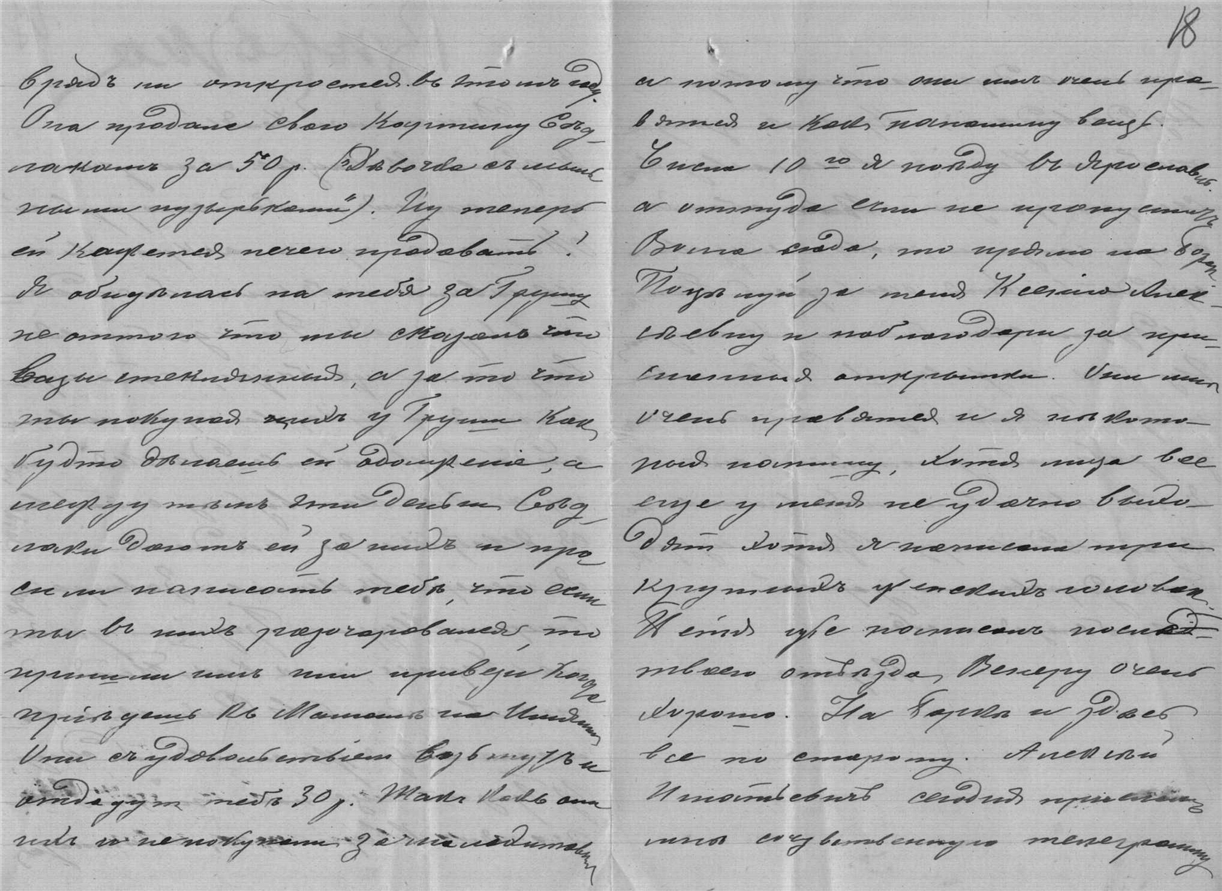 18
врядъ ли откроется въ этомъ году.
Она продала свою картину Сѣд-
лакамъ за 50 р. („Дѣвочка съ мыль-
ными пузырьками"). Ну теперь
ей кажется нечего продавать!
Я обидѣлась на тебя за Грушу
не оттого что ты сказалъ что
вазы стеклянныя, а за то что
ты покупая ихъ у Груши какъ
будто дѣлаешь ей одолженіе, а
между тѣмъ эти деньги Сѣд-
лаки даютъ ей за нихъ и про
сили написать тебѣ, что если
ты въ нихъ разочаровался, то
пришли имъ или привези когда
пріѣдешь къ Мамашѣ на
Они съ удовольствіемъ возьмутъ и
отдадутъ тебѣ 30 р. Такъ какъ они
ихъ и не покупали за
а потому что они имъ очень нра-
вятся и какъ вещь.
Числа 10го я поѣду въ Ярославль.
а оттуда если не пропуститъ
Волга сюда, то прямо на Борок.
Поцѣлуй за меня Ксенію Алек-
сѣевну и поблагодари за при-
сланныя открытки. Они мнѣ
очень нравятся и я нѣкото-
рыя напишу, хотя лица все
еще у меня не удачно выхо-
дятъ хотя я написала три
крупныхъ женскихъ головки.
Нетя уже написалъ послѣ
твоего отъѣзда, Венеру очень
хорошо. На Боркѣ и здѣсь
все по старому. Алексѣй
Игнатьевичъ сегодня прислалъ
мнѣ сочувственную телеграмму